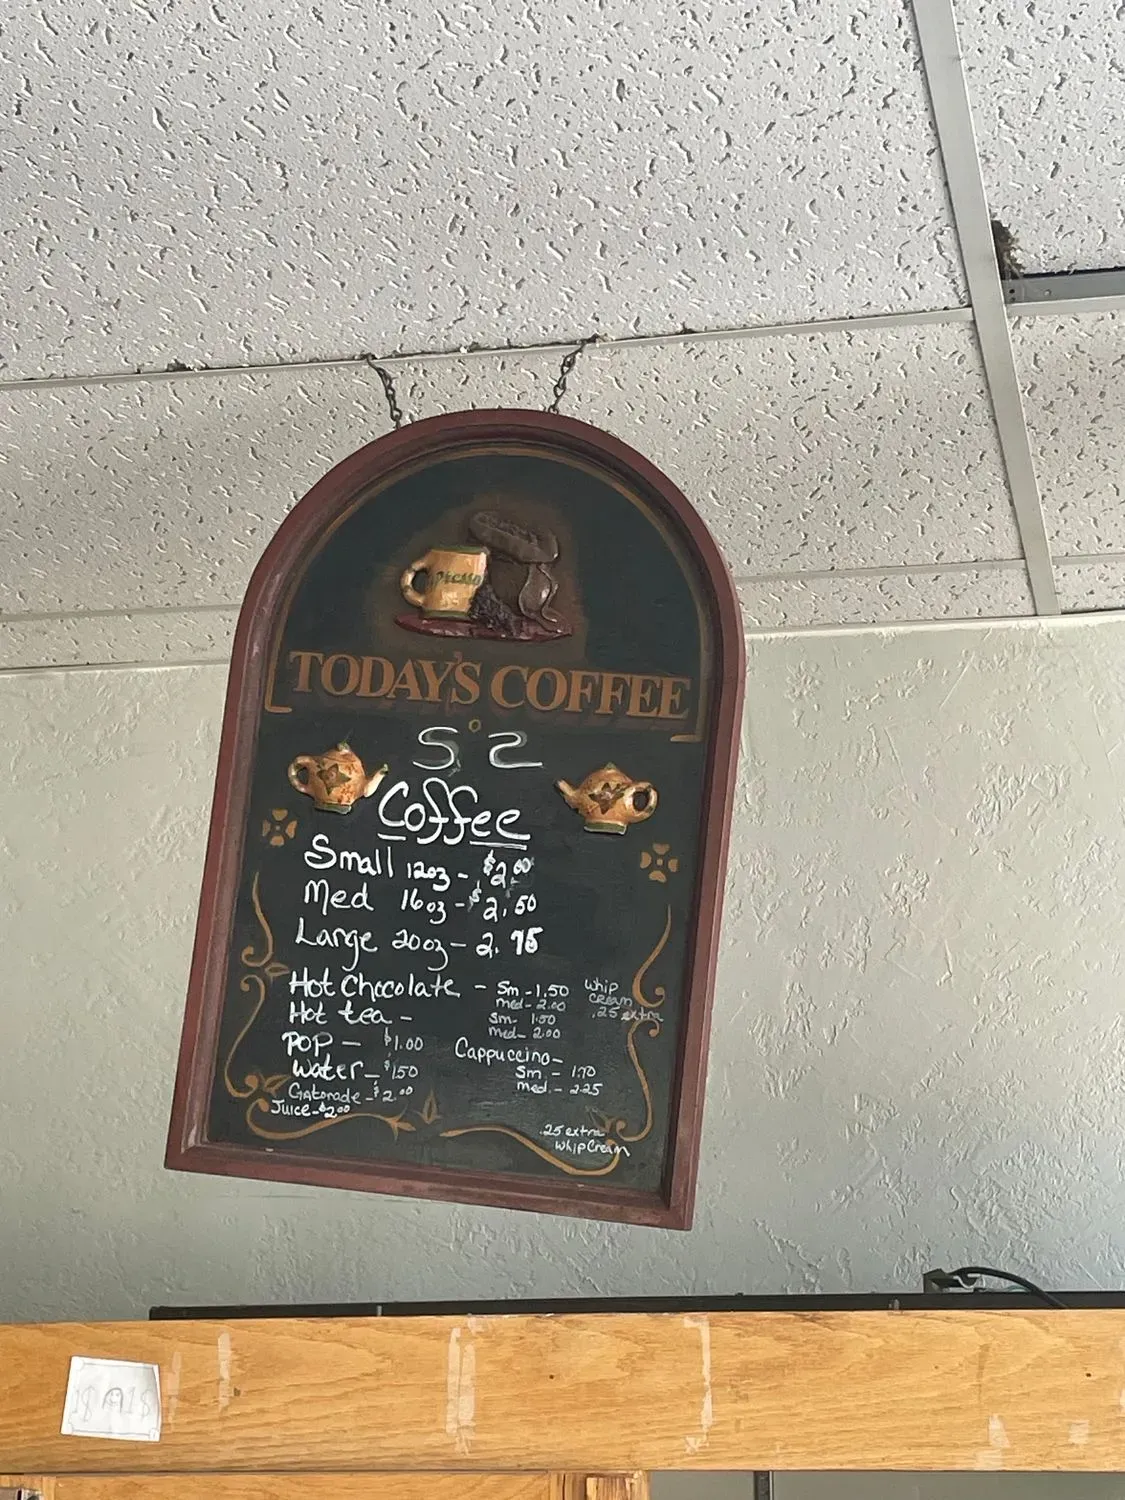 TODAY'S COFFEE
S°2
Coffee
Small 12oz - $2.00
Med 16oz - $2.50
Large 20oz - 2.75
Hot Chocolate - Sm - 1.50
med - 2.00
whip
cream
.25 extra
Hot tea - Sm - 1.50
med - 2.00
POP - $1.00
Water - $1.50
Gatorade - $2.00
Juice - $2.00
Cappuccino -
Sm. - 1.70
med. - 2.25
.25 extra
Whip Cream